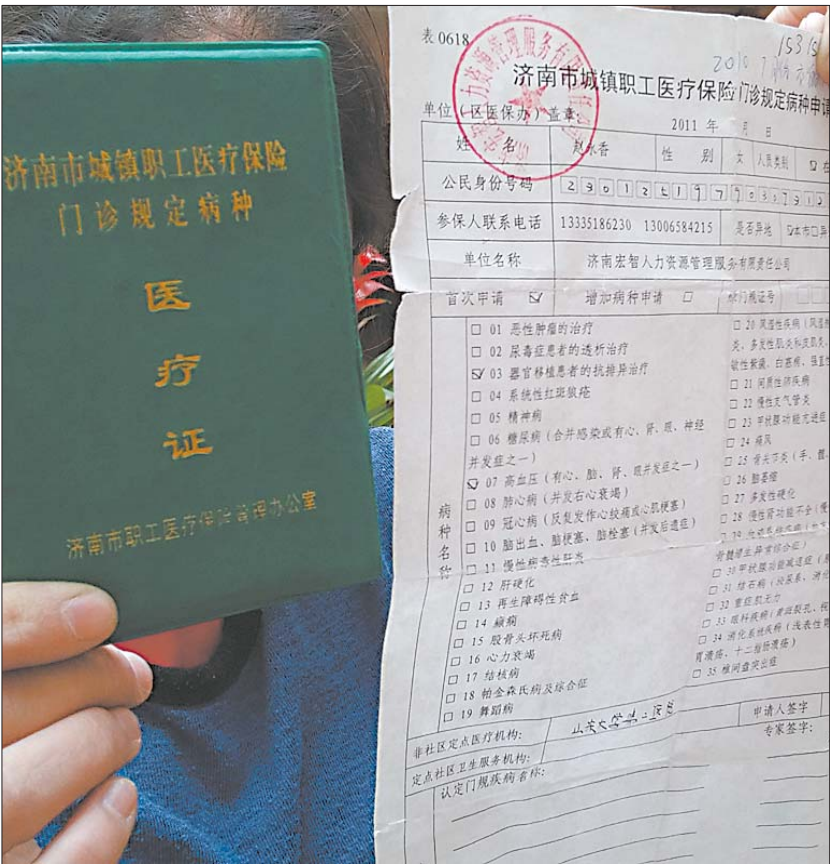 济南市城镇职工医疗保险
门诊规定病种
医
疗
证
济南市职工医疗保险管理办公室
表0618
15315
2010
济南市城镇职工医疗保险门诊规定病种申请
单位（区医保办）盖章：
2011 年 月 日
姓 名 赵永香 性 别 女 人员类别
公民身份号码
参保人联系电话 13335186230 13006584215 是否异地 ☑本市□异
单位名称 济南宏智人力资源管理服务有限责任公司
首次申请 ☑ 增加病种申请 □ 门规证号
病种名称
□ 01 恶性肿瘤的治疗
□ 02 尿毒症患者的透析治疗
☑ 03 器官移植患者的抗排异治疗
□ 04 系统性红斑狼疮
□ 05 精神病
□ 06 糖尿病（合并感染或有心、肾、眼、神经
并发症之一）
☑ 07 高血压（有心、脑、肾、眼并发症之一）
□ 08 肺心病（并发右心衰竭）
□ 09 冠心病（反复发作心绞痛或心肌梗塞）
□ 10 脑出血、脑梗塞、脑栓塞（并发后遗症）
□ 11 慢性病毒性肝炎
□ 12 肝硬化
□ 13 再生障碍性贫血
□ 14 癫痫
□ 15 股骨头坏死病
□ 16 心力衰竭
□ 17 结核病
□ 18 帕金森氏病及综合征
□ 19 舞蹈病
□ 20 风湿性疾病（风湿
炎、多发性肌炎和皮肌炎、
敏性紫癜、白塞病、强直
□ 21 间质性肺疾病
□ 22 慢性支气管炎
□ 23 甲状腺功能亢进症
□ 24 痛风
□ 25 骨关节炎（手、髋、
□ 26 脑萎缩
□ 27 多发性硬化
□ 28 慢性肾功能不全（慢
骨髓增生异常综合征）
□ 30 甲状腺功能减退症
□ 31 结石病（泌尿系、消化
□ 32 重症肌无力
□ 33 眼科疾病（黄斑裂孔、视
□ 34 消化系统疾病（浅表性胃
胃溃疡、十二指肠溃疡）
□ 35 椎间盘突出症
非社区定点医疗机构： 山东大学第二医院 申请人签字
定点社区卫生服务机构： 专家签字：
认定门规疾病名称：